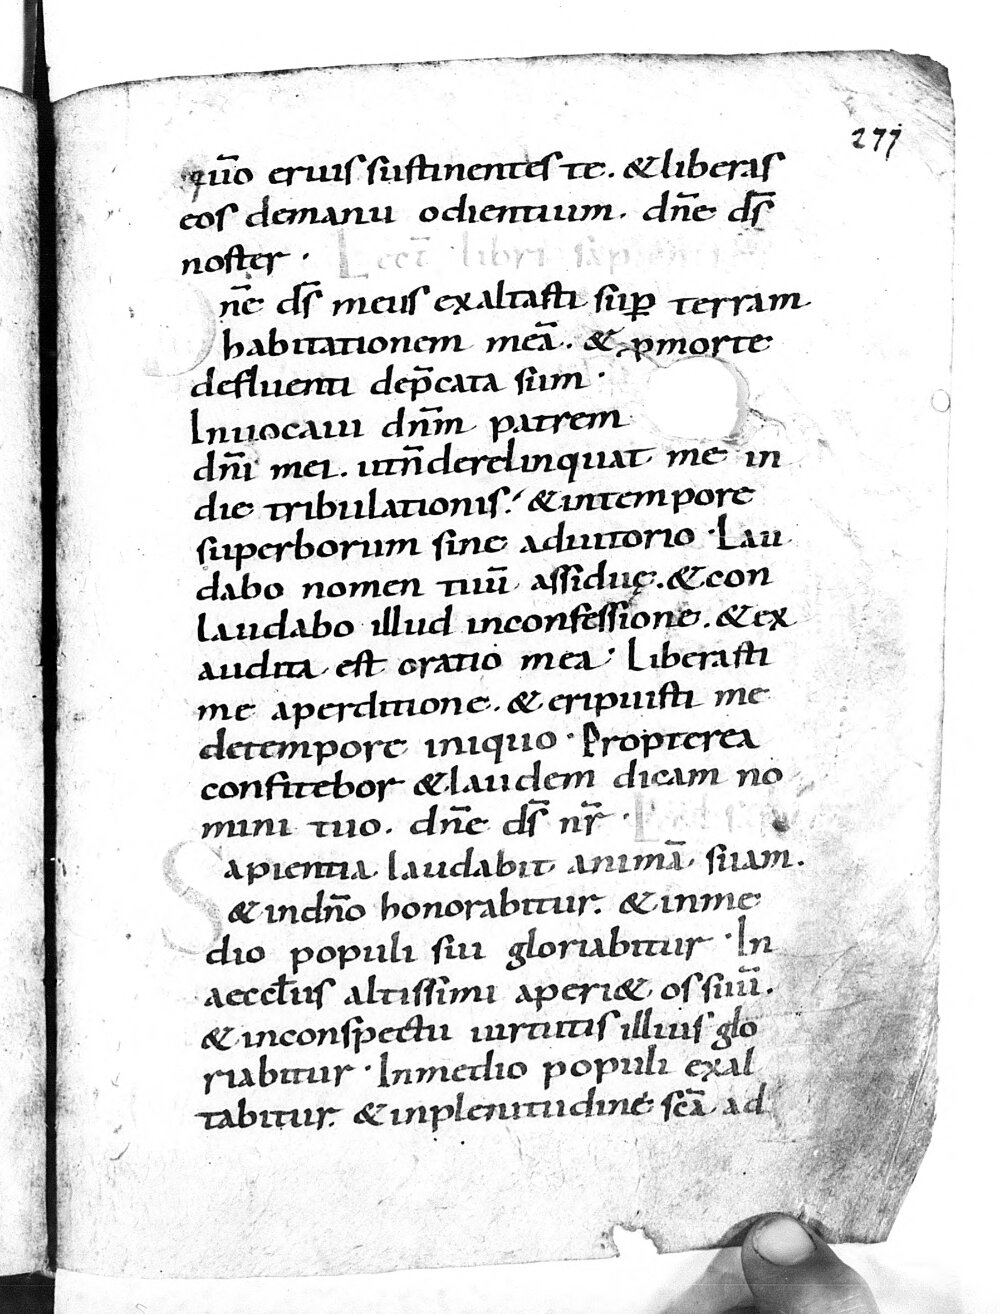 277
quō eruis sustinentes te. &liberas
eos demanu odientium. dn̄e ds̄
noster.
Lect̄ libri sapien
Dn̄e ds̄ meus exaltasti sup̱ terram
habitationem meā. & ꝓmorte
defluenti dep̄cata sum.
Inuocaui dn̄m patrem
dn̄i mei. utn̄derelinquat me in
die tribulationis. &intempore
superborum sine adiutorio. Lau
dabo nomen tuū assidue. &con
laudabo illud inconfessione. &ex
audita est oratio mea. Liberasti
me aperditione. &eripuisti me
detempore iniquo. Propterea
confitebor &laudem dicam no
mini tuo. dn̄e ds̄ nr̄.
Sapientia laudabit animā suam.
&indn̄o honorabitur. &inme
dio populi sui gloriabitur. In
aeccłiis altissimi aperi& os suū.
&inconspectu uirtutis illius glo
riabitur. Inmedio populi exal
tabitur. &inplenitudine scā ad